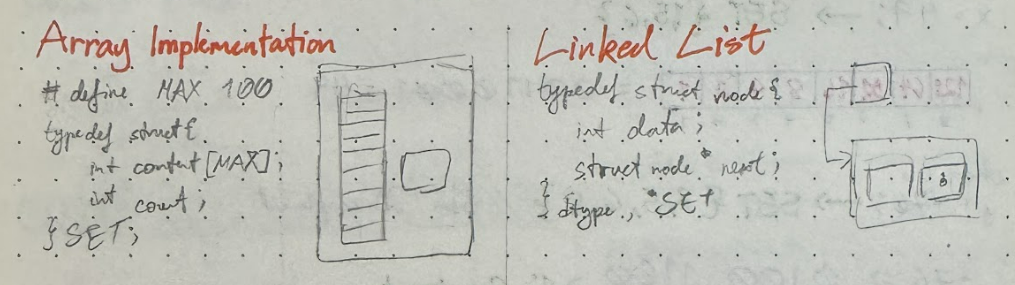 Array Implementation
# define MAX 100
typedef struct{
int content[MAX];
int count;
} SET;
Linked List
typedef struct node{
int data;
struct node* next;
} dtype, *SET